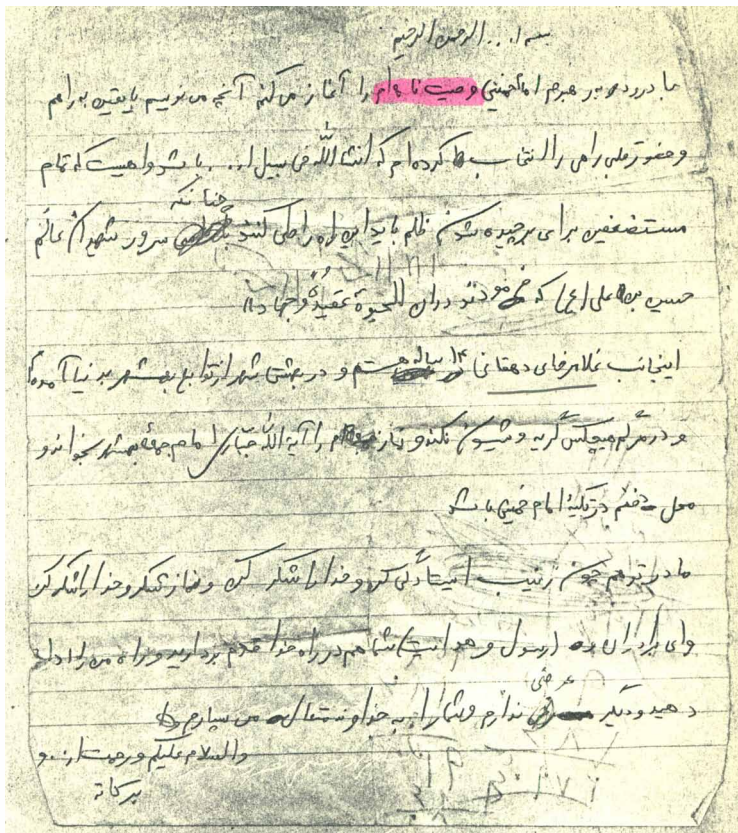 بسم ا... الرحمن الرحیم
با درود بر رهبرم امام خمینی وصیت نامه ام را آغاز می کنم آنچه می نویسم با یقین به راهم
و حضور قلبی راهی را انتخاب کرده ام که انشاالله فی سبیل ا... باشد راهیست که تمام
مستضعفین برای برچیده شدن ظلم باید این راه را طی کنند چنانکه سرور شهیدان عالم
حسین بن علی (ع) که فرمودند در ان الحیوة عقیدة و جهاد))
اینجانب غلامرضای دهقانی ۱۴ ساله هستم و در بهشتی شهر از توابع بهشهر بدنیا آمده ام
و در مرگم هیچکس گریه و شیون نکند و نماز را آیة الله جباری امام جمعه بهشهر بخواند و
محل دفنم در تکیهٔ امام خمینی باشد
مادر تو هم چون زینب ایستادگی کن و خدا را شکر کن و نماز شکر و خدا را شکر کن
و ای برادران (رسول و هدایت) شما هم در راه خدا قدم بردارید و راه من را ادا
دهید و دیگر عرضی ندارم و شما را به خداوند متعال می سپارم
والسلام علیکم و رحمت ا... و
برکاته